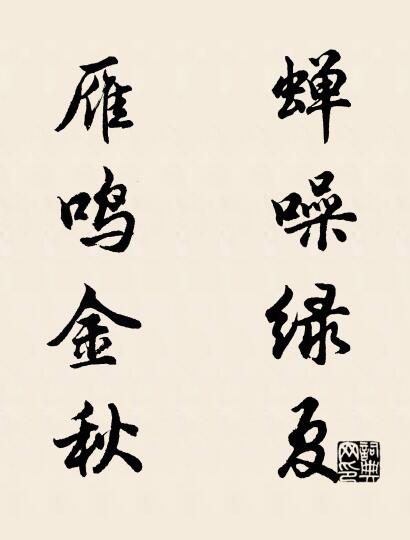 蝉噪绿夏
雁鸣金秋
詞典
网印